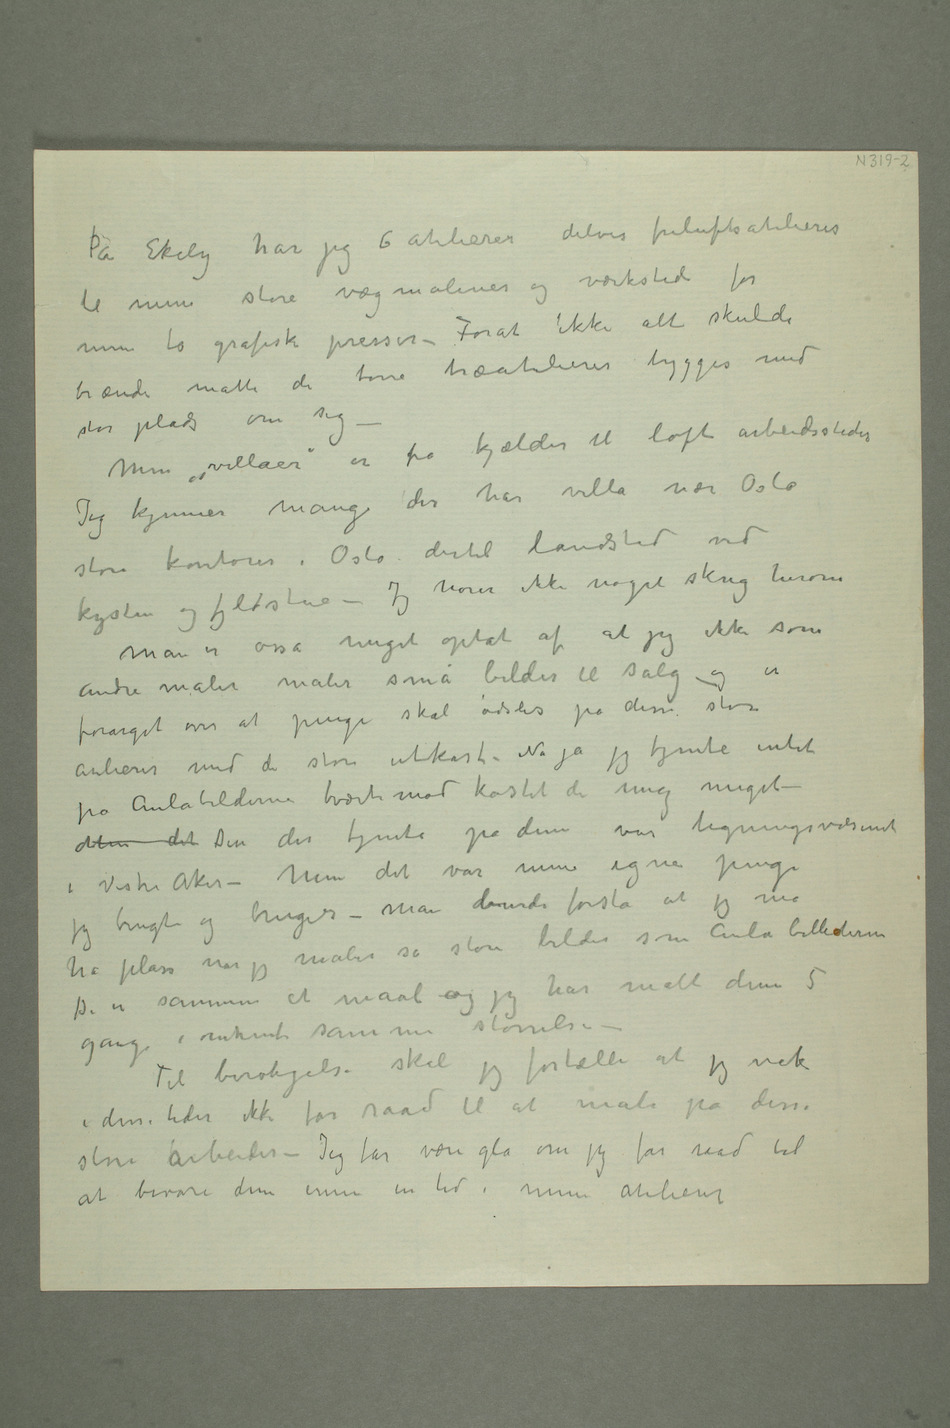 N 319-2
På Ekely har jeg 6 atelierer delvis friluftsatelieres
til mine store vægmalerier og værksted for
mine to grafiske presser – Forat ikke alt skulde
brænde måtte de tørre træatelierer bygges med
stor plads om sig –
Mine „villaer“ er fra kjælder til loft arbeidssteder
Jeg kjenner mange der har villa nær Oslo
store kontorer i Oslo dertil landsted ved
kysten og fjeldstue – Jeg hører ikke noget skrig herom
Man er også meget optat af at jeg ikke som
andre maler maler små bilder til salg – og er
forarget over at penge skal ødsles på disse store
atelierer med de store utkast. Nå ja jeg tjente intet
på Aulabilderne tværtimod kostet de meg meget –
Men det Den der tjente på dem var ligningsvæsenet
i Vestre Aker – Men det var mine egne penge
jeg brugte og bruger – Man burde forstå at jeg må
ha plass når jeg maler så store bilder som Aulabillederne
De er sammen et maal og jeg har malt dem 5
gange i omtrent samme størrelse –
Til beroligelse skal jeg fortælle at jeg nok
i disse tider ikke får raad til at male på disse
store arbeider – Jeg får være gla om jeg får råd til
at bevare dem ennu en tid i mine atelierer